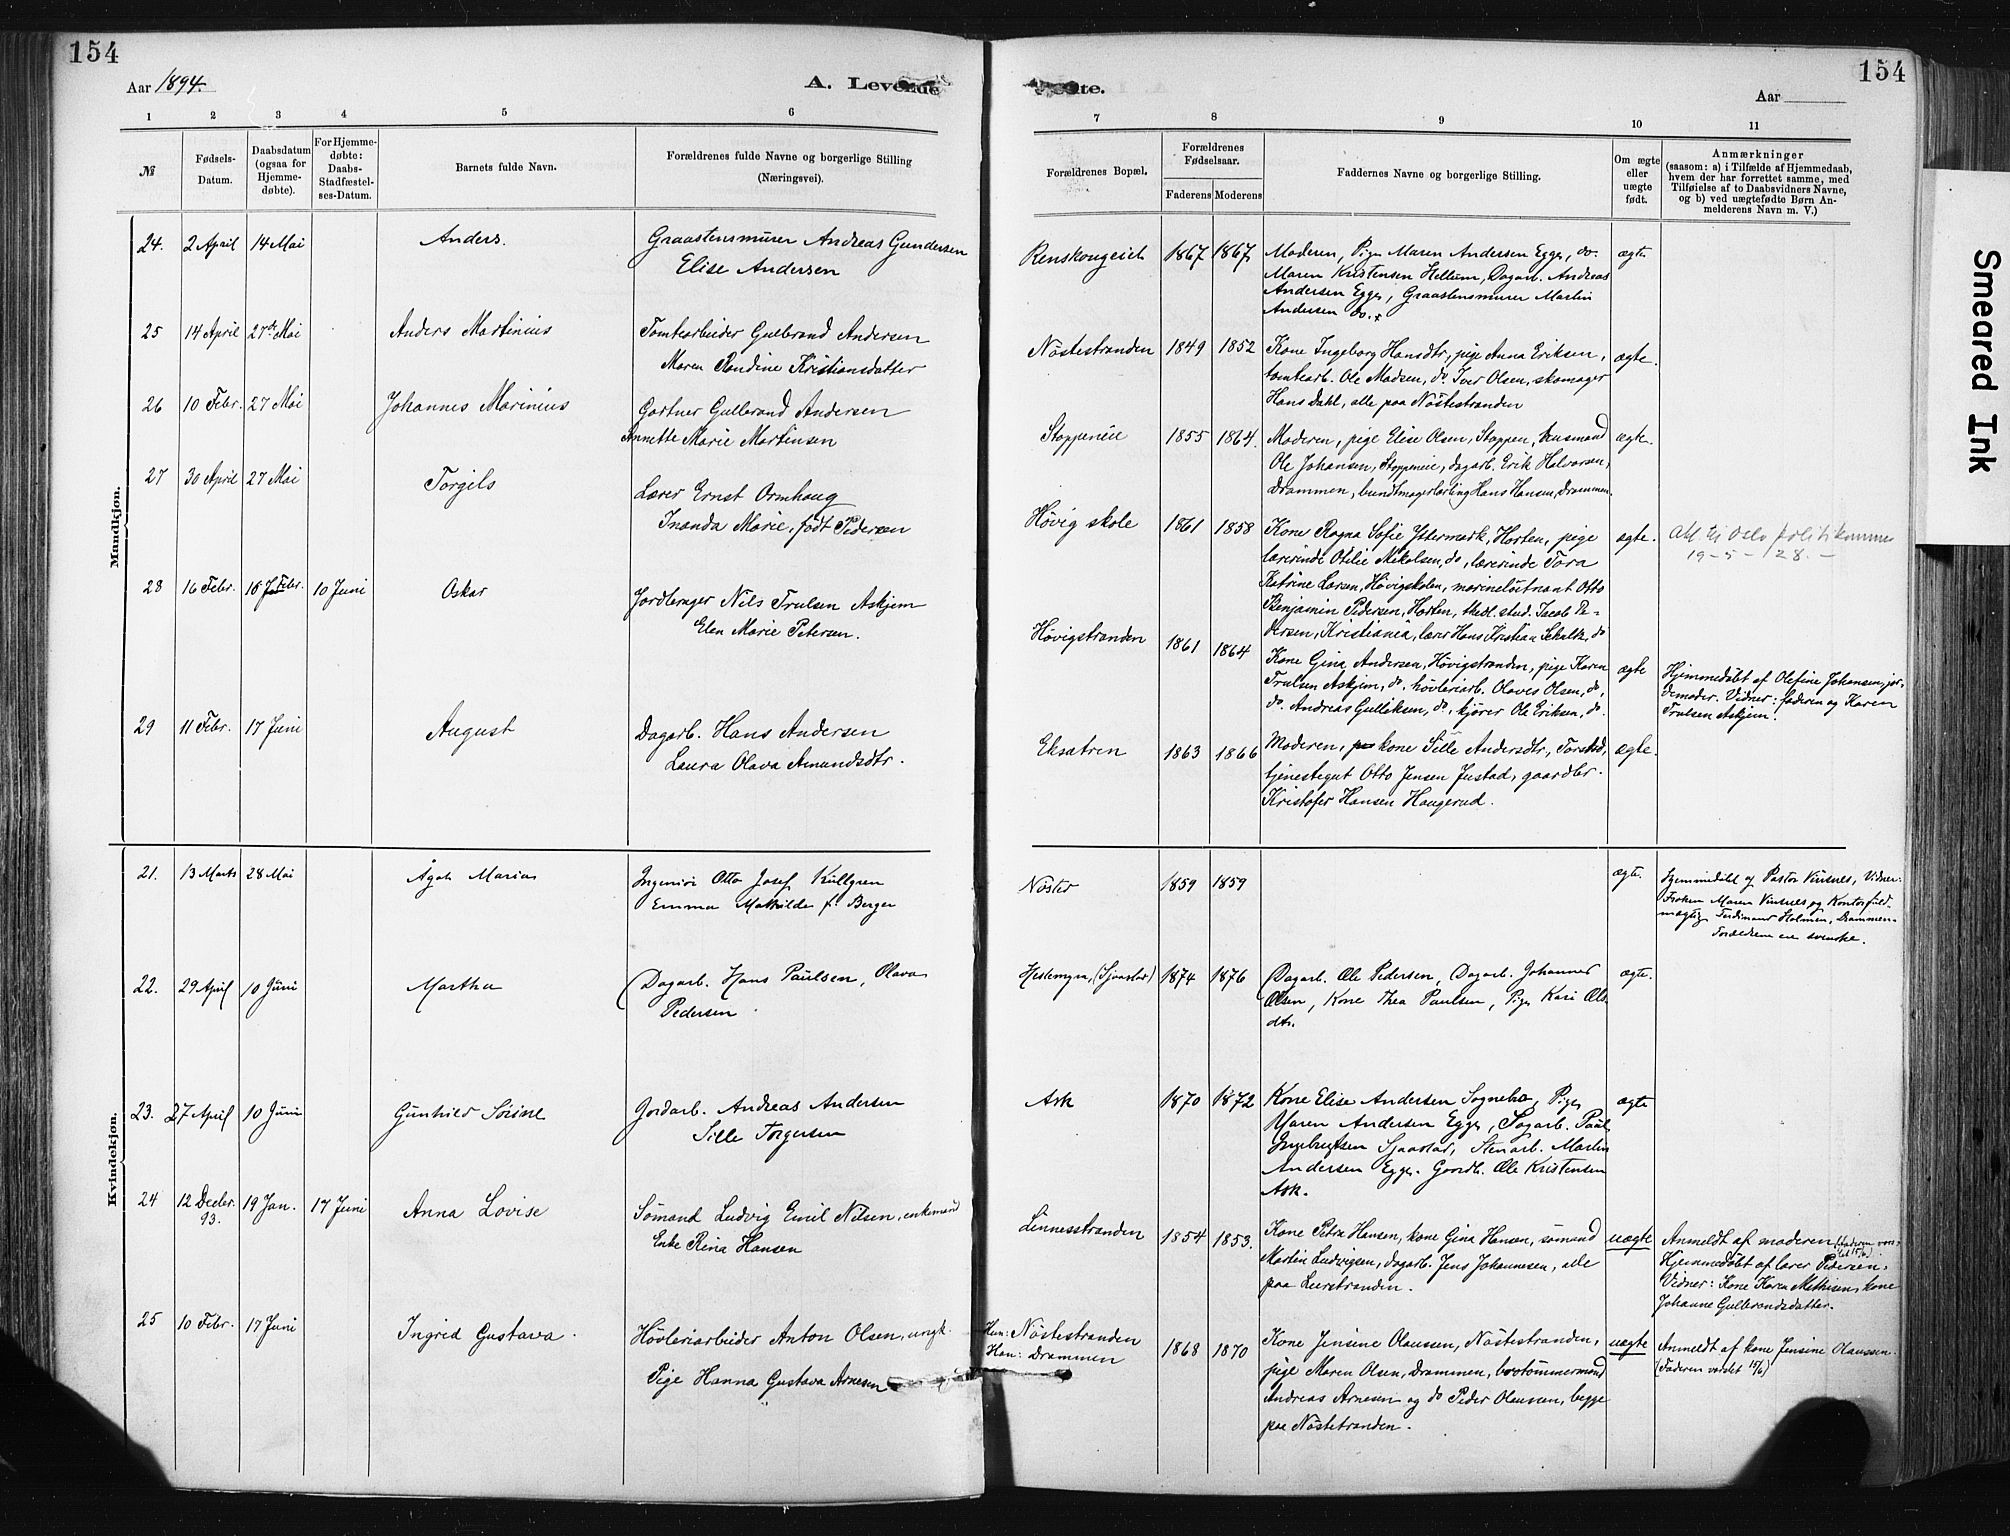 154
Aar 1894.
A. Levende
1 2 3 4 5 6
№
Fødsels-
Datum.
Daabsdatum
(ogsaa for
Hjemme-
døbte).
For Hjemme-
døbte:
Daabs-
Stadfæstel-
ses-Datum.
Barnets fulde Navn.
Forældrenes fulde Navne og borgerlige Stilling
(Næringsvei).
Mandkjøn.
24. 2 April 14 Mai Anders. Graastensmurer Andreas Gundersen
Elise Andersen
25 14 April 27de Mai Anders Martinius Tomtearbeider Gulbrand Andersen
Maren Randine Kristiansdatter
26 10 Febr. 27 Mai Johannes Marinius Gartner Gulbrand Andersen
Annette Marie Martinsen
27 30 April 27 Mai Torgils Lærer Ernst Ormhaug
Inanda Marie, født Pedersen
28 16 Febr. 18 Febr. 10 Juni Oskar Jordbruger Nils Trulsen Askjem
Elen Marie Petersen.
29 11 Febr. 17 Juni August Dagarb. Hans Andersen
Laura Olava Amundsdtr.
Kvindekjøn.
21. 13 Marts 28 Mai Ågot Maria Ingeniør Otto Josef Kullgren
Emma Mathilde f. Berger
22. 29 April 10 Juni Martha Dagarb. Hans Paulsen, Olava
Pedersen
23. 27 April 10 Juni Gunhild Sörine Jordarb. Andreas Andersen
Sille Torgersen
24 12 Decbr. 93. 19 Jan. 17 Juni Anna Lovise Sømand Ludvig Emil Nilsen, enkemand
Enke Rina Hansen
25 10 Febr. 17 Juni Ingrid Gustava. Høvleriarbeider Anton Olsen, ungk.
Pige Hanna Gustava Arnesen
154
Aar
7 8 9 10 11
Forældrenes Bopæl.
Forældrenes
Fødselsaar.
Faderens Moderens
Faddernes Navne og borgerlige Stilling.
Om ægte
eller
uægte
født.
Anmærkninger
(saasom: a) i Tilfælde af Hjemmedaab,
hvem der har forrettet samme, med
Tilføielse af to Daabsvidners Navne,
og b) ved uægtefødte Børn An-
melderens Navn m. V.)
Renskougeiet 1867 1867 Moderen, Pige Maren Andersen Egge, do. ægte
Maren Kristensen Hellum, Dagarb. Andreas
Andersen Egge, Graastensmurer Martin
Andersen do.
Nöstestranden 1849 1852 Kone Ingeborg Hansdtr, pige Anna Eriksen, ægte.
tomtearb. Ole Madsen, do. Iver Olsen, skomager
Hans Dahl, alle paa Nöstestranden
Stoppeneie 1855 1864. Moderen, pige Elise Olsen, Stoppen, husmand ægte.
Ole Johansen, Stoppeneie, dagarb. Erik Halvorsen,
Drammen, bundtmagerlærling Hans Hansen, Drammen.
Høvig skole 1861 1858 Kone Ragna Sofie Yttermark, Horten, pige ægte.
lærerinde Otilie Nikolsen, do, lærerinde Tora
Katrine Larsen, Høvigskolen, marineløitnant Otto
Benjamin Pedersen, Horten, theol. stud. Jacob Pe-
dersen, Kristiania, lærer Hans Kristian Schultz, do
Att. til Oslo politikammer
19-5-28.-
Høvigstranden 1861 1864 Kone Gina Andersen, Høvigstranden, pige Karen ægte
Trulsen Askjem, do, høvleriarb. Olaves Olsen, do,
do. Andreas Gulliksen, do, kjører Ole Eriksen, do.
Hjemmedøbt af Olefine Johansen, jor-
demoder. Vidner: faderen og Karen
Trulsen Askjem.
Eksatren 1863 1866 Moderen, kone Sille Andersdtr, Torstad, ægte.
tjenestegut Otto Jensen Justad, gaardbr.
Kristofer Hansen Haugerud.
Nöste 1859 1859 ægte.
Hjemmedöbt af Pastor Vintnes, Vidner:
Frøken Maren Vintnes og Kontorfuld-
mægtig Ferdinand Holmen, Drammen.
Forældrene ere svenske.
Hestemyra, (Sjaastad) 1874 1876 Dagarb. Ole Pedersen, Dagarb. Johannes ægte.
Olsen, Kone Thea Paulsen, Pige Kari Ols
dtr.
Ask 1870 1872 Kone Elise Andersen Sognebo, Pige ægte
Maren Andersen Egge, Dagarb. Paul
Ingebrigtsen Sjaastad, Stenarb. Martin
Andersen Egge. Gaardb. Ole Kristensen
Ask.
Linnesstranden 1854 1853. Kone Petra Hansen, kone Gina Hansen, sømand uægte
Martin Ludvigsen, dagarb. Jens Johannesen, alle
paa Lierstranden.
Anmeldt af moderen (faderen vars-
let 15/6).
Hjemmedøbt af lærer Pedersen.
Vidner: Kone Karen Mathisen, kone
Johanne Gulbrandsdatter.
Hun: Nöstestranden
Han: Drammen
1868 1870 Kone Jensine Olausen, Nöstestranden, uægte
pige Maren Olsen, Drammen, bostömmermand
Andreas Arnesen og do Peder Olaussen, begge
paa Nöstetranden.
Anmeldt af kone Jensine Olaussen.
(Faderen varslet 15/6)
Smeared Ink